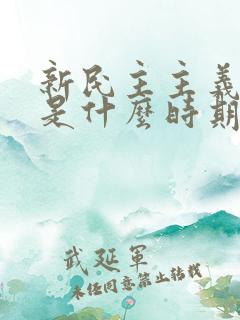 新民主主義
是什麼時期
武延軍
未经同意禁止转载